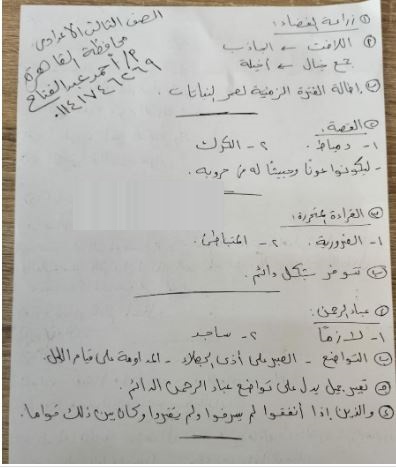 الصف الثالث الاعدادى
محافظة القاهرة
م/ أحمد عبد الفتاح
٠١١٤١٧٤٦٢٦٩
① زراعة الفضاء:
② اللافت ← الجاذب
جمع خيال ← أخيلة
ⓑ إطالة الفترة الزمنية لعمر النباتات.
القصة:
١- دمياط. ٢- الكرك
- ليكونوا عونًا وجيشًا له فى حروبه.
القراءة المتحررة:
١- الفورية. ٢- المتباطئ.
تتوفر بشكل دائم.
عباد الرحمن:
١- لازمًا ٢- ساجد
التواضع - الصبر على أذى الجهلاء - المداومة على قيام الليل.
تعبير جميل يدل على تواضع عباد الرحمن الدائم.
والذين إذا أنفقوا لم يسرفوا ولم يقتروا وكان بين ذلك قواما.